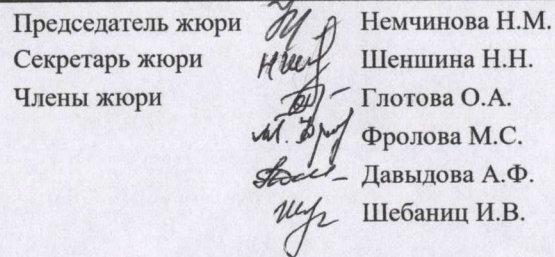 Председатель жюри Немчинова Н.М.
Секретарь жюри Шеншина Н.Н.
Члены жюри Глотова О.А.
Фролова М.С.
Давыдова А.Ф.
Шебаниц И.В.